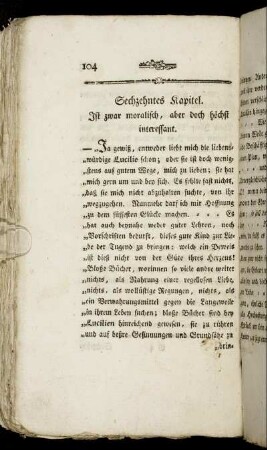 104
Sechzehntes Kapitel.
Ist zwar moralisch, aber doch höchst
interessant.
— „Ja gewiß, entweder liebt mich die liebens-
„würdige Lucilie schon; oder sie ist doch wenig-
„stens auf gutem Wege, mich zu lieben; sie hat
„mich gern um und bey sich. Es fehlte fast nicht,
„daß sie mich nicht abgehalten suchte, von ihr
„wegzugehen. Nunmehr darf ich mir Hoffnung
„zu dem süssesten Glücke machen. Es
„hat auch beynahe weder guter Lehren, noch
„Vorschriften bedurft, dieses gute Kind zur Lie-
„be der Tugend zu bringen: welch ein Beweis
„ist dieß nicht von der Güte ihres Herzens!
„Bloße Bücher, worinnen so viele andre weiter
„nichts, als Nahrung einer regellosen Liebe,
„nichts, als wollüstige Regungen, nichts, als
„ein Verwahrungsmittel gegen die Langeweile
„in ihrem Leben suchen; bloße Bücher sind bey
„Lucilien hinreichend gewesen, sie zu rühren
„und auf beßre Gesinnungen und Grundsätze zu
„brin-